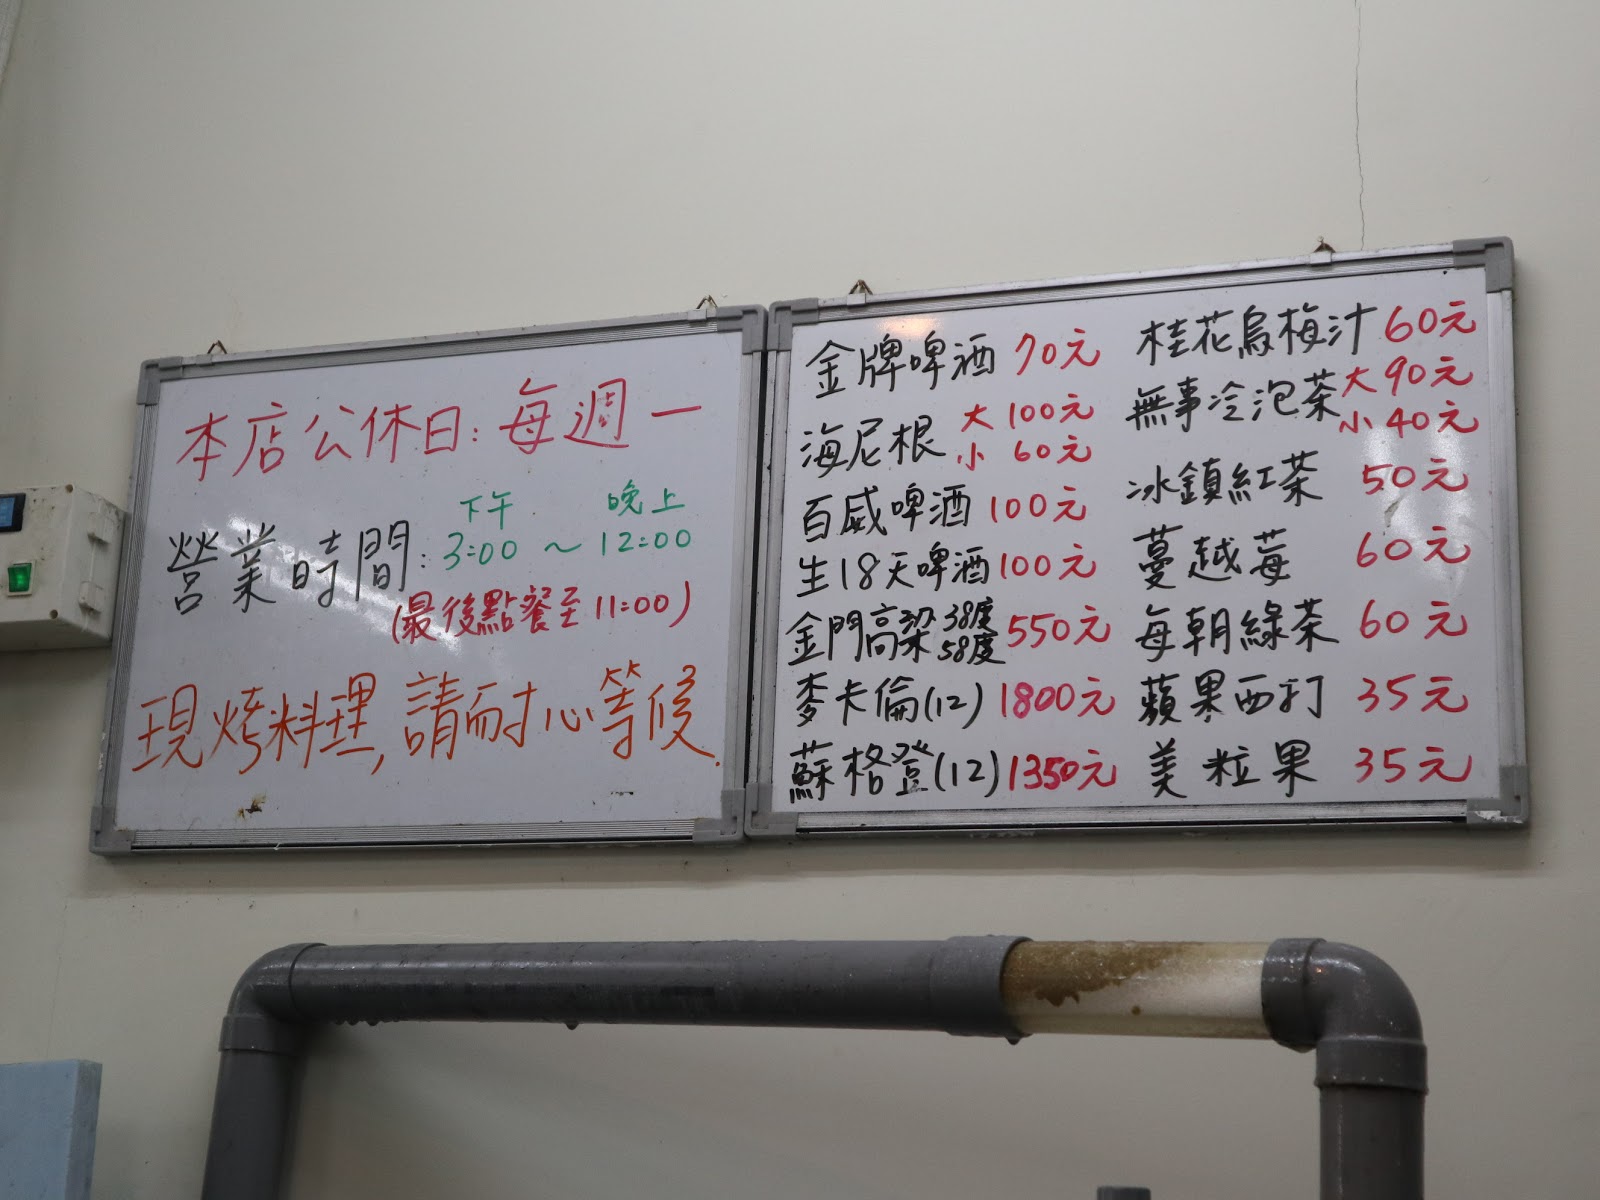 本店公休日:每週一
下午 晚上
營業時間:3:00~12:00
(最後點餐至11:00)
現烤料理,請耐心等候.
金牌啤酒 70元
海尼根 大 100元
小 60元
百威啤酒 100元
生18天啤酒 100元
金門高梁 38度 58度 550元
麥卡倫(12) 1800元
蘇格登(12) 1350元
桂花烏梅汁 60元
無事冷泡茶 大 90元
小 40元
冰鎮紅茶 50元
蔓越莓 60元
每朝綠茶 60元
蘋果西打 35元
美粒果 35元